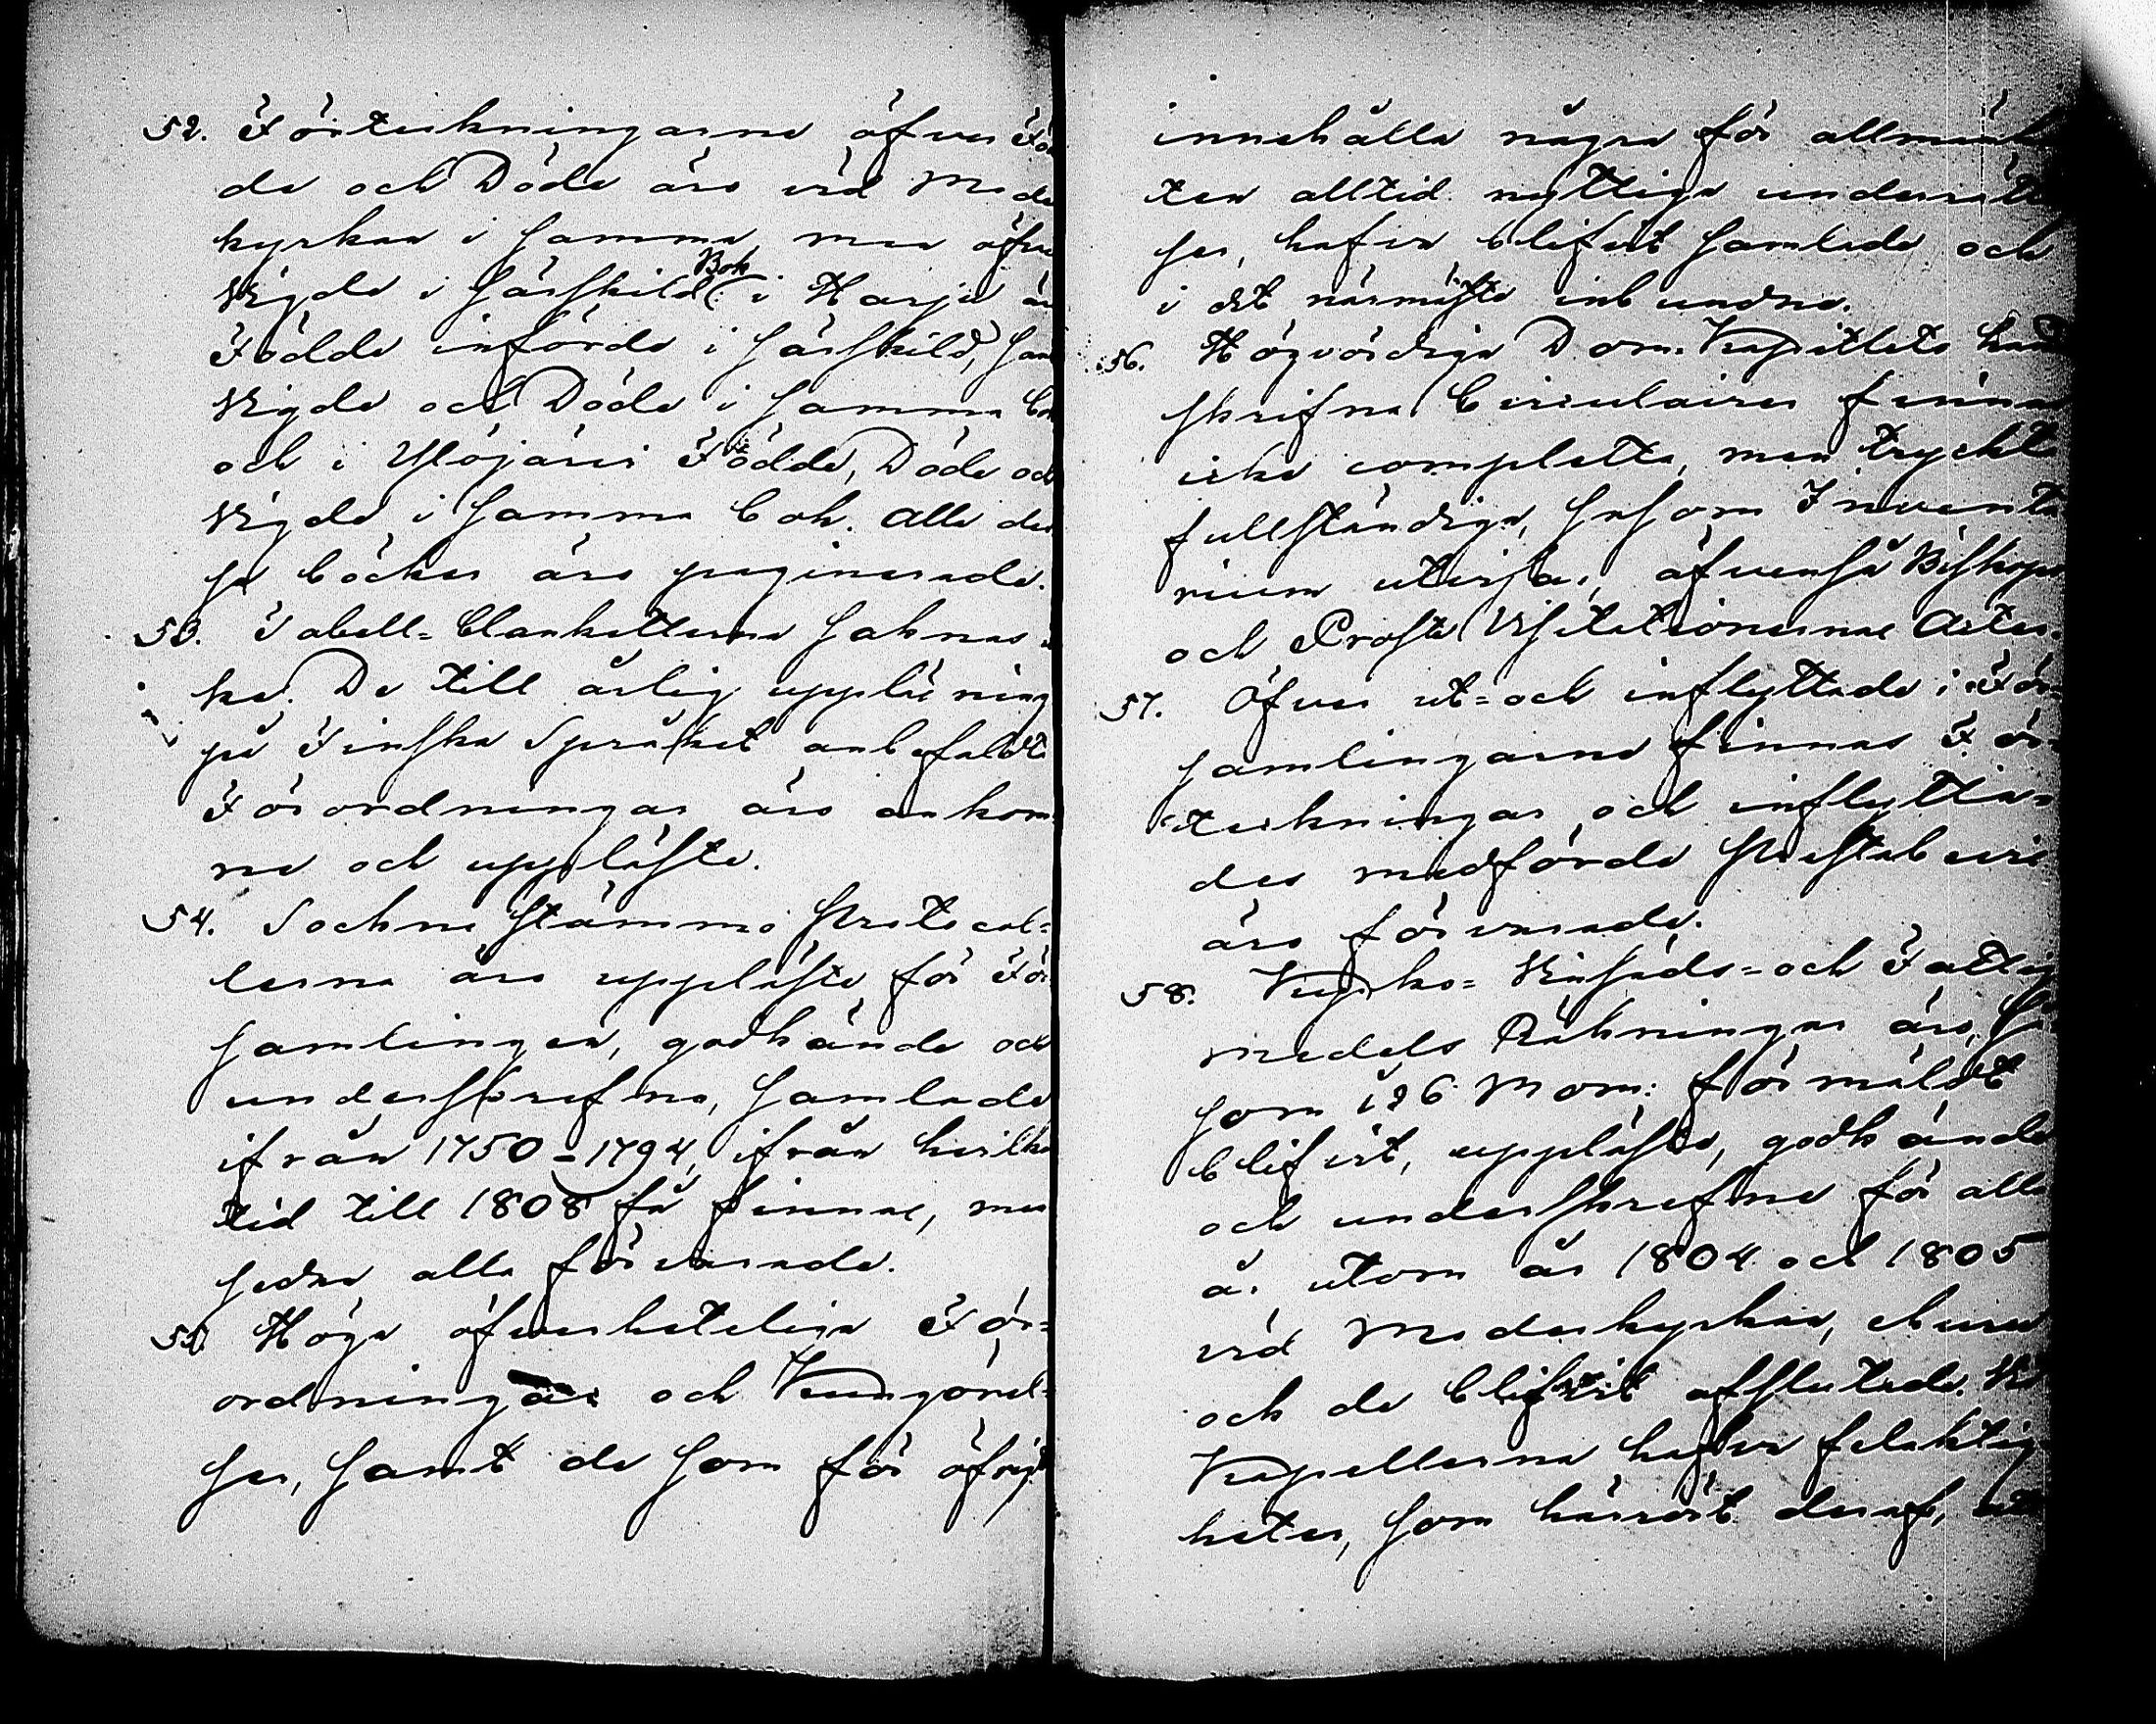 52. Förteckningarne öfver Fö
de och Döde äro vid Mode
kyrkan i samma, men öfver
Vigde i särskild Bok. i Harju är
Födde införde i särskild, sam
Vigde och Döde i samma bok
och i Ylöjärvi Födde, Döde och
Vigde i samma bok. Alla des
se böcker äro paginerade.
53. Tabell-blanketterne saknas ic
ke. De till årlig uppläsning
på Finska Språket anbefaldte
Förordningar äro ankom
ne och uppläste.
54. Sochne stämmo Protocol-
lerna äro uppläste för För
samlingen, godkände och
underskrefne, samlade
ifrån 1750-1794, ifrån hvilken
tid till 1808 få finnas, men
sedan alla förvarade.
55. Höga öfverheteliga För-
ordningar och Kungörel-
ser, samt de som för öfrigt
innehålla några för allmänhe
ten alltid nyttiga underrättel
ser, hafva blifvit samlade och
i det närmaste inbundna.
56. Högvördiga Dom-Kapitlets hand
skrifna Circulairer finnas
icke completta, men tryckta
fullständiga, såsom Inventa
rium utvisar, äfvenså Biskops
och Prosts Visitationernas Acter.
57. Öfver ut- och inflyttade i För-
samlingarne finnas För-
teckningar, och inflyttan-
des medförde Prestabevis
äro förvarade.
58. Kyrko- Kassäds- och Fattig
medels Räkningar äro, så
som i 26 Mom: förmäldt
blifvit, uppläste, godkände
och underskrefne för alla
år utom år 1804 och 1805
vid Moderkyrkan, ehuru
och de blifvit afslutade. Vid
Kapellerna hafva felaktig
heter, som härrört deraf, att